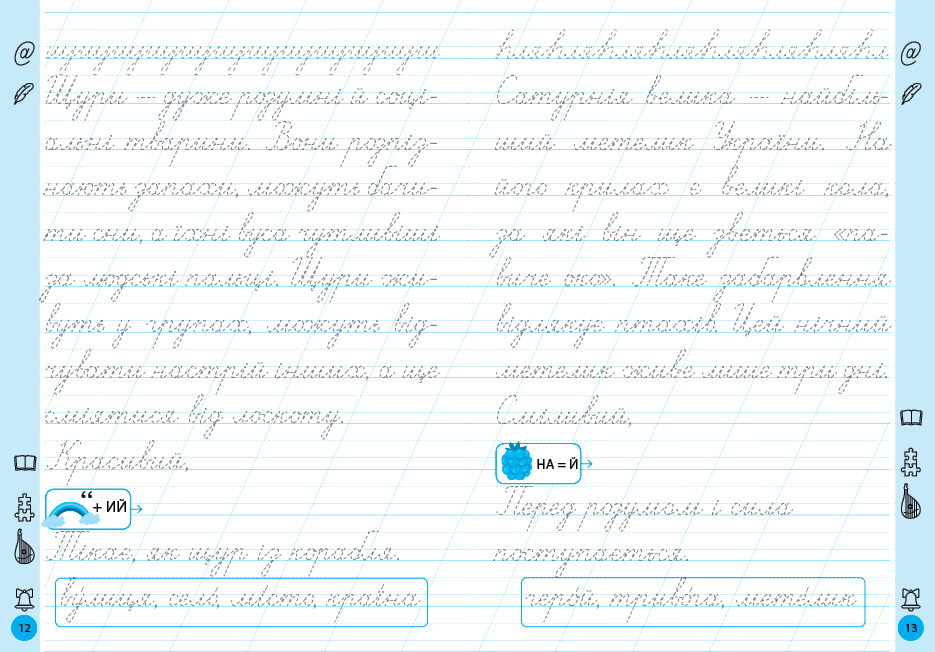 Щури — дуже розумні й соці-
альні тварини. Вони розріз-
няють запахи, можуть бачи-
ти сни, а їхні вуса чутливіші
за людські пальці. Щури жи-
вуть у групах, можуть від-
чувати настрій інших, а ще
сміятися від лоскоту.
Красивий,
“ + ИЙ
Тікає, як щур із корабля.
ву́лиця, село́, мі́сто, краї́на
12
Сатурнія велика — найбіль-
ший метелик України. На
його крилах є великі кола,
за які він ще зветься «па-
виче око». Таке забарвлення
відлякує птахів. Цей нічний
метелик живе лише три дні.
Сміливий,
НА = Й
Перед розумом і сила
поступається.
геро́й, триво́га, мете́лик
13